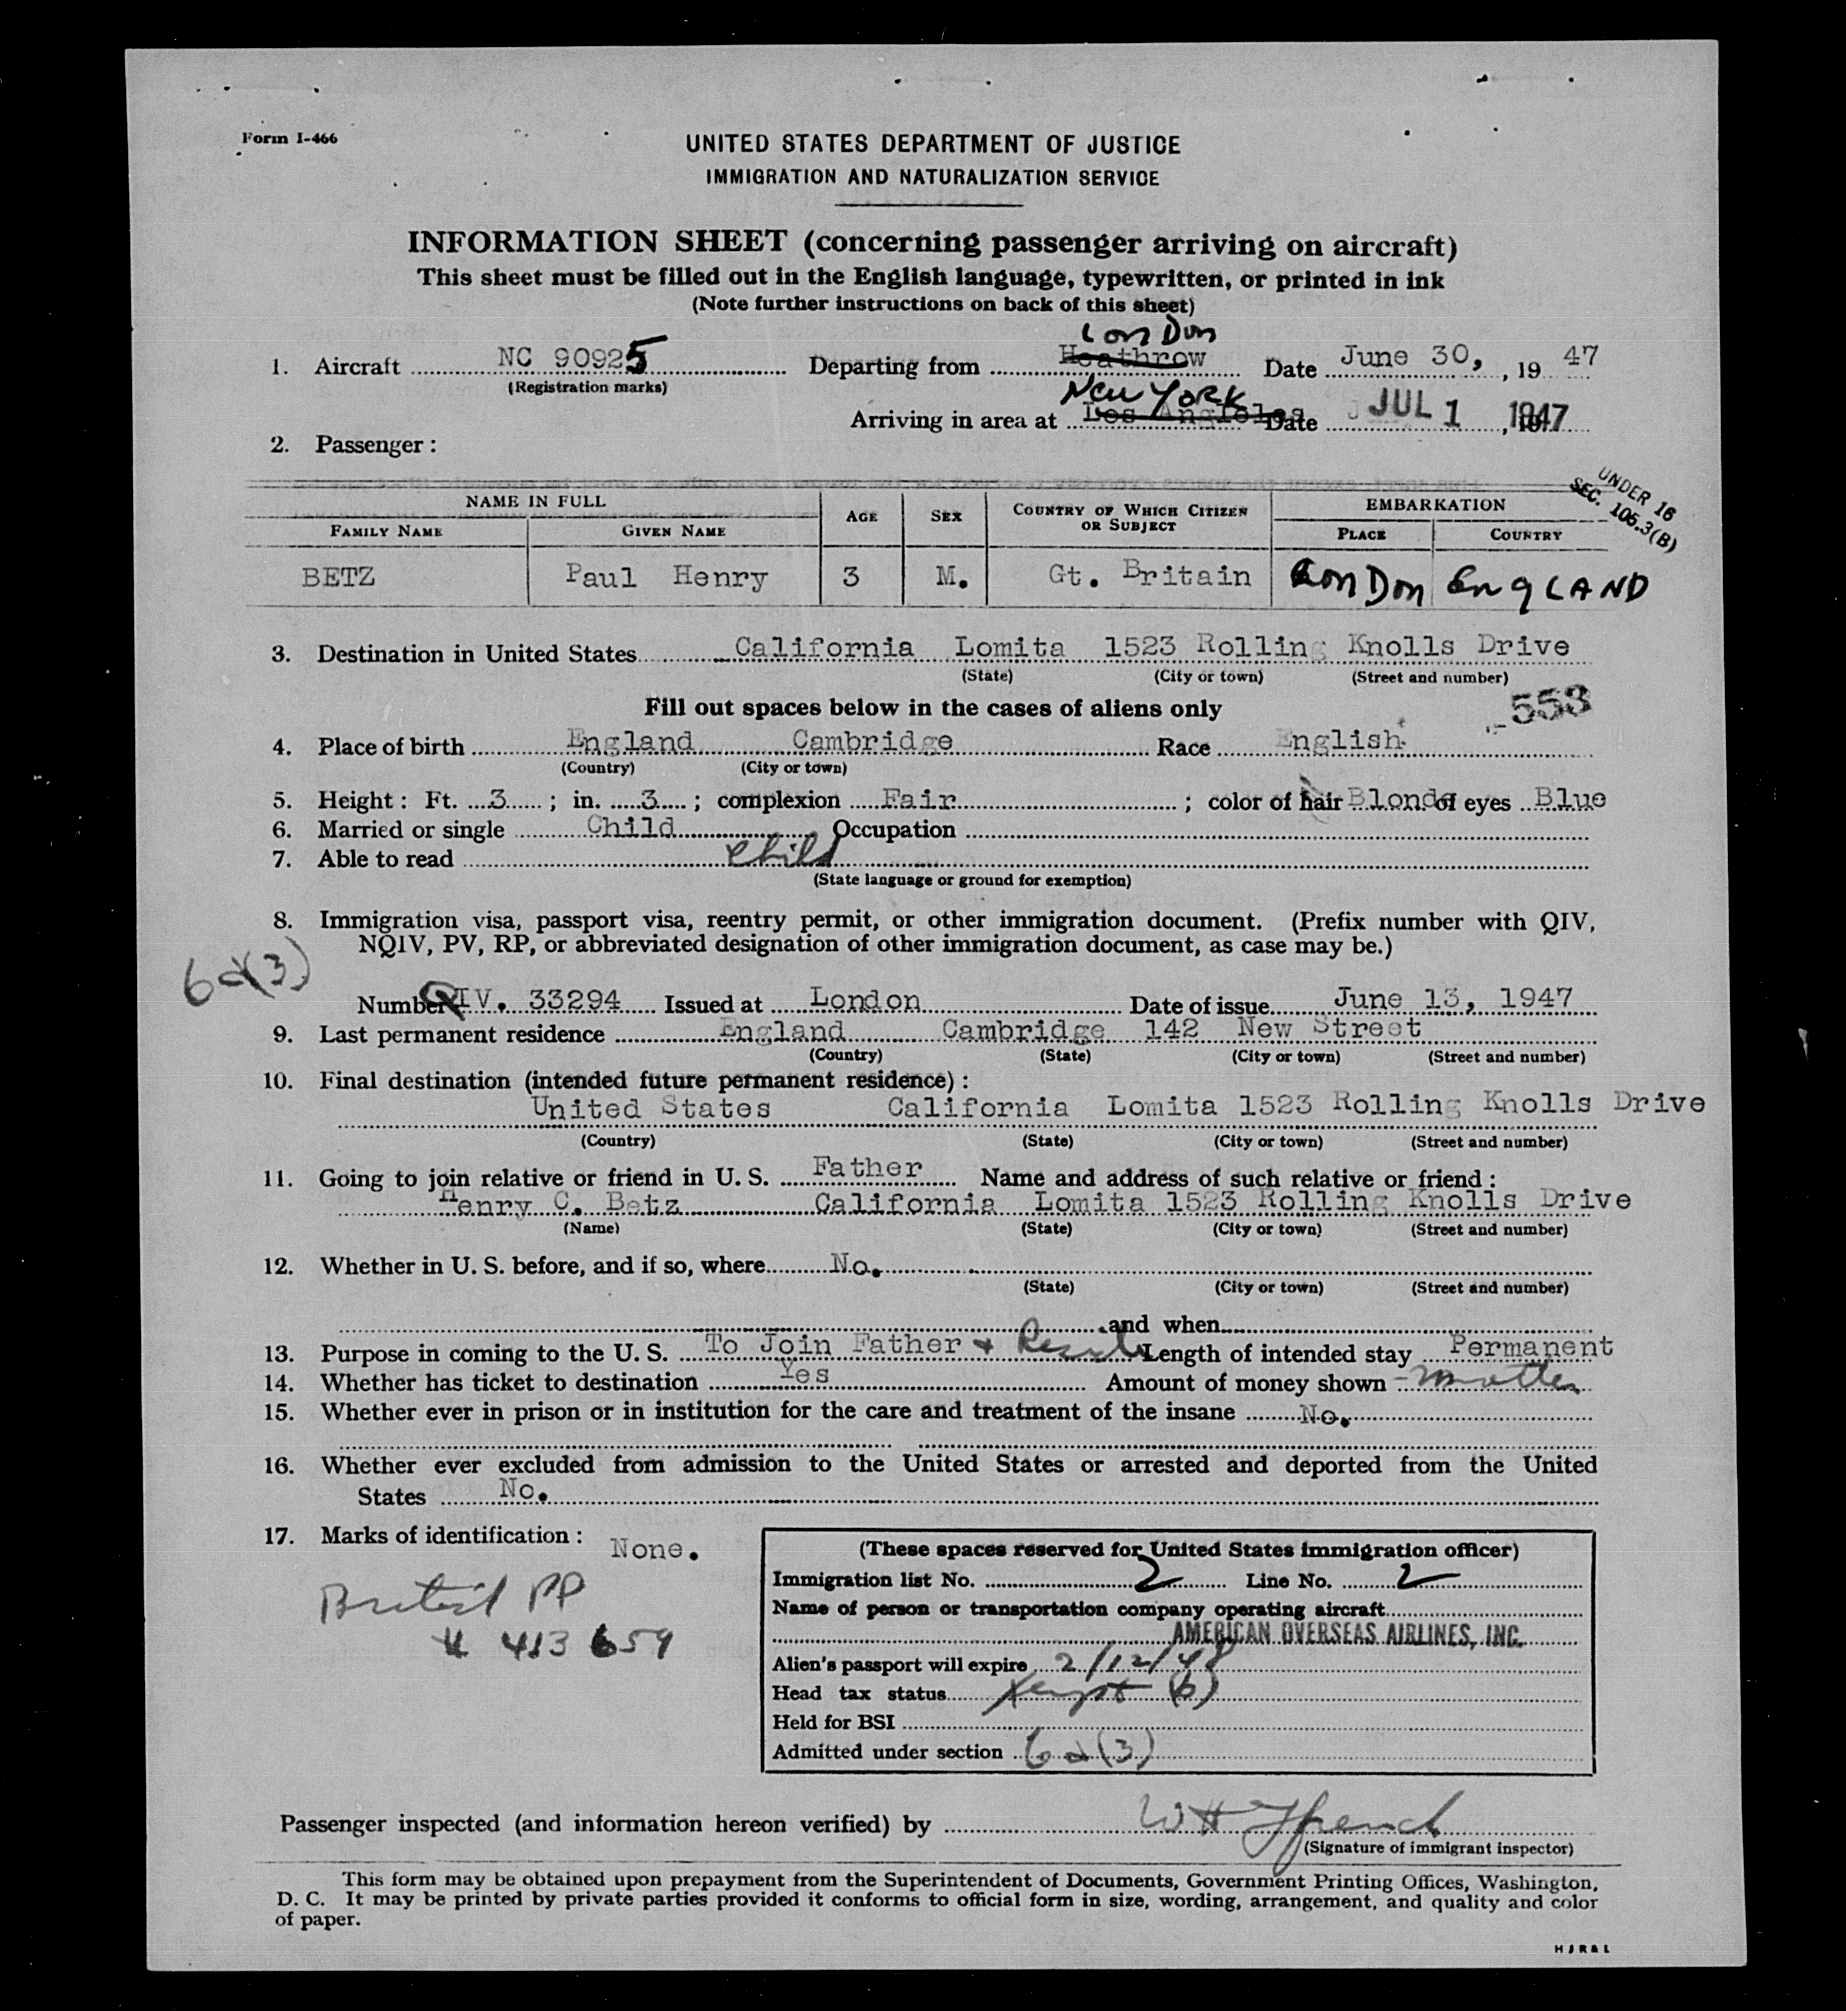 Form I-466
UNITED STATES DEPARTMENT OF JUSTICE
IMMIGRATION AND NATURALIZATION SERVICE
INFORMATION SHEET (concerning passenger arriving on aircraft)
This sheet must be filled out in the English language, typewritten, or printed in ink
(Note further instructions on back of this sheet)
LonDon
1. Aircraft NC 90925 Departing from Heathrow Date June 30, , 19 47
(Registration marks)
New YORK
Arriving in area at Los Angeles Date JUL 1 1947
2. Passenger :
UNDER 16
SEC. 105.3(B)
NAME IN FULL AGE SEX COUNTRY OF WHICH CITIZEN OR SUBJECT EMBARKATION
FAMILY NAME GIVEN NAME PLACE COUNTRY
BETZ Paul Henry 3 M. Gt. Britain LonDon EngLAND
3. Destination in United States California Lomita 1523 Rolling Knolls Drive
(State) (City or town) (Street and number)
Fill out spaces below in the cases of aliens only 553
4. Place of birth England Cambridge Race English
(Country) (City or town)
5. Height : Ft. 3 ; in. 3 ; complexion Fair ; color of hair Blonde of eyes Blue
6. Married or single Child Occupation
7. Able to read Child
(State language or ground for exemption)
8. Immigration visa, passport visa, reentry permit, or other immigration document. (Prefix number with QIV,
NQIV, PV, RP, or abbreviated designation of other immigration document, as case may be.)
6d(3)
Number QIV. 33294 Issued at London Date of issue June 13, 1947
9. Last permanent residence England Cambridge 142 New Street
(Country) (State) (City or town) (Street and number)
10. Final destination (intended future permanent residence) :
United States California Lomita 1523 Rolling Knolls Drive
(Country) (State) (City or town) (Street and number)
11. Going to join relative or friend in U. S. Father Name and address of such relative or friend :
Henry C. Betz California Lomita 1523 Rolling Knolls Drive
(Name) (State) (City or town) (Street and number)
12. Whether in U. S. before, and if so, where No.
(State) (City or town) (Street and number)
and when
13. Purpose in coming to the U. S. To Join Father + Length of intended stay Permanent
14. Whether has ticket to destination Yes Amount of money shown mother
15. Whether ever in prison or in institution for the care and treatment of the insane No.
16. Whether ever excluded from admission to the United States or arrested and deported from the United
States No.
17. Marks of identification : None.
British PP
# 413659
(These spaces reserved for United States immigration officer)
Immigration list No. 2 Line No. 2
Name of person or transportation company operating aircraft
AMERICAN OVERSEAS AIRLINES, INC.
Alien's passport will expire 2/12/48
Head tax status (b)
Held for BSI
Admitted under section 6d(3)
Passenger inspected (and information hereon verified) by W H
(Signature of immigrant inspector)
This form may be obtained upon prepayment from the Superintendent of Documents, Government Printing Offices, Washington,
D. C. It may be printed by private parties provided it conforms to official form in size, wording, arrangement, and quality and color
of paper.
H J R & L